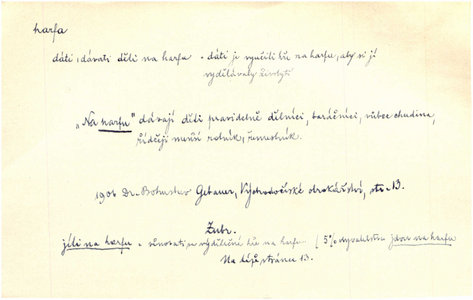 harfa
dáti, dávati děti na harfu = dáti je vyučiti hře na harfu, aby si jí
vydělávaly živobytí
„Na harfu" dávají děti pravidelně dělníci, baráčníci, vůbec chudina,
řidčeji menší rolník, řemeslník.
1906 Dr. Bohuslav Gebauer, Východočeské otrokářství, str. 13.
Žubr.
jíti na harfu = věnovati se výdělečné hře na harfu. / 5% obyvatelstva jdou na harfu
Na téže stránce 13.